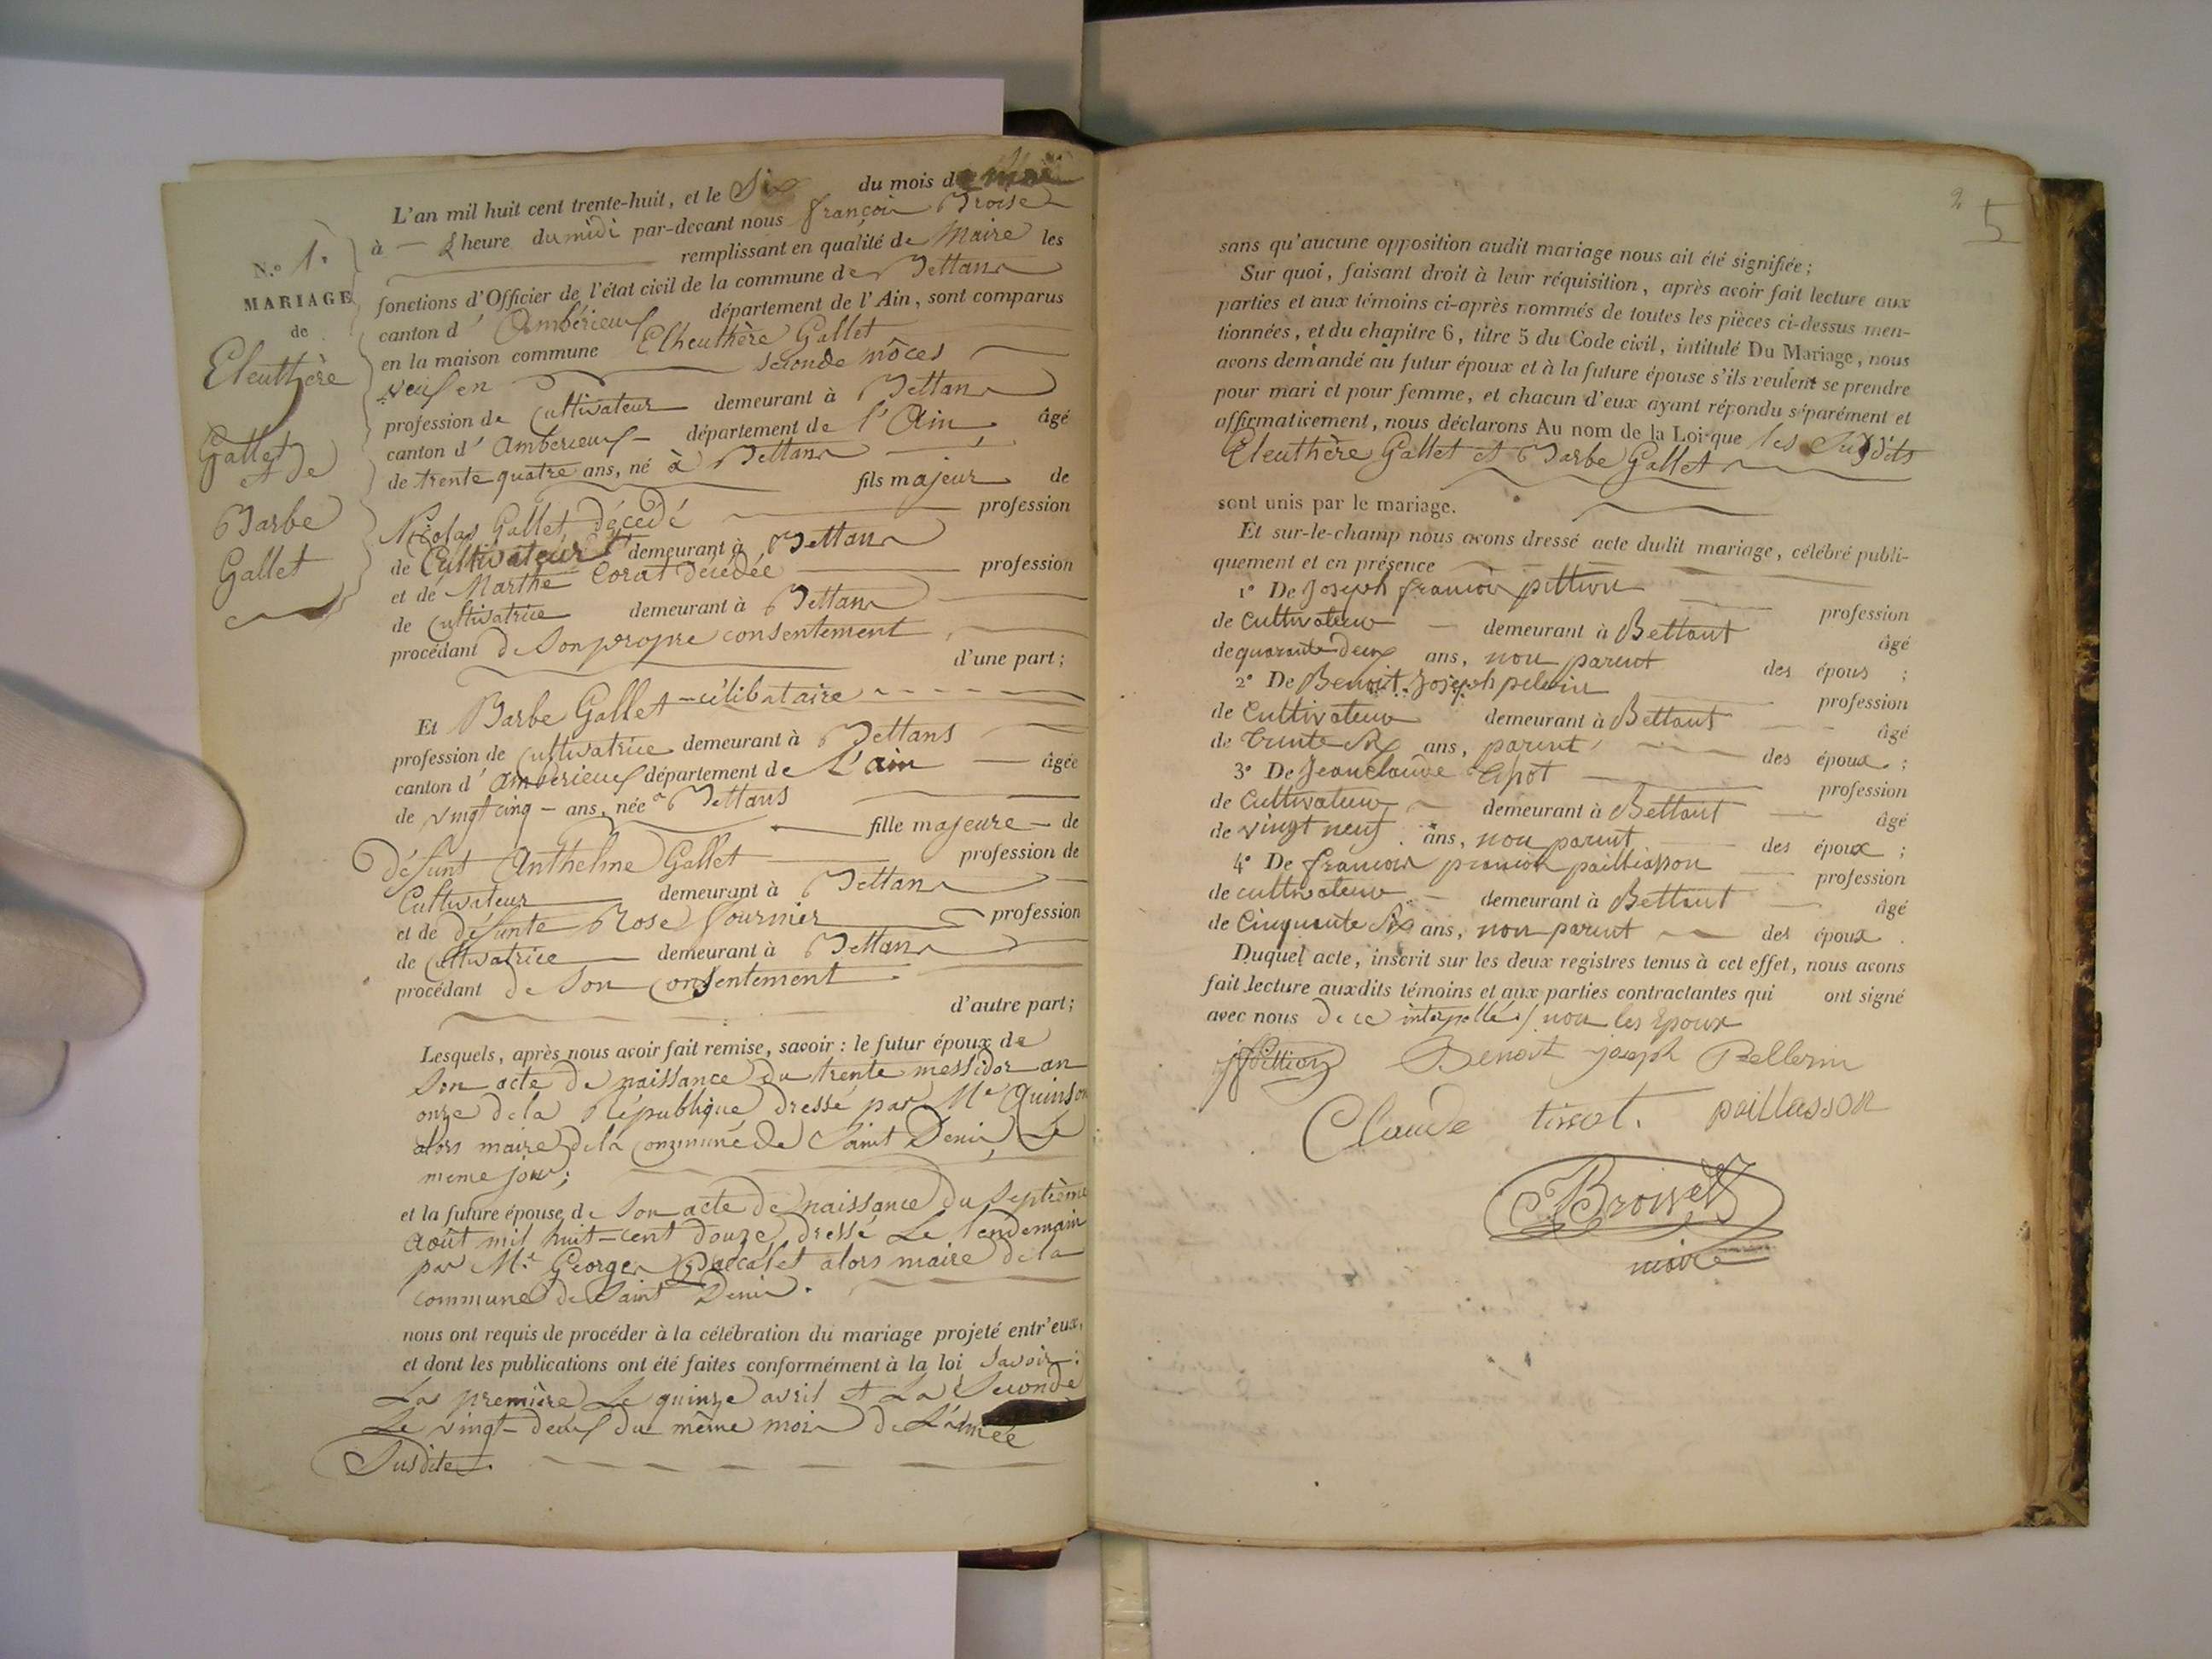 N.° 1.
MARIAGE
de
Eleuthère
Gallet
et de
Barbe
Gallet
L'an mil huit cent trente-huit, et le Six du mois de mai
à heure du midi par-devant nous françois Broiset
remplissant en qualité de Maire les
fonctions d'Officier de l'état civil de la commune de Bettans
canton d' Ambérieux département de l'Ain, sont comparus
en la maison commune Elheuthère Gallet
veuf en seconde nôces
profession de Cultivateur demeurant à Bettans
canton d' Amberieux département de l'Ain âgé
de trente quatre ans, né à Bettans
fils majeur de
Nicolas Gallet décedé profession
de Cultivateur demeurant à Bettans
et de Marthe Corat décédée profession
de Cultivatrice demeurant à Bettans
procédant de Son propre consentement
d'une part;
Et Barbe Gallet célibataire
profession de Cultivatrice demeurant à Bettans
canton d' amberieux département de L'ain âgée
de vingt cinq ans, née a Bettans
fille majeure de
Défunt Anthelme Gallet profession de
Cultivateur demeurant à Bettans
et de défunte Rose fournier profession
de Cultivatrice demeurant à Bettans
procédant de Son Consentement
d'autre part;
Lesquels, après nous avoir fait remise, savoir : le futur époux de
Son acte de naissance du trente messidor an
onze de la République dressé par Me Quinson
alors maire de la Commune de Saint Denis Le
meme jour;
et la future épouse de Son acte de naissance du Septième
Août mil huit-cent douze dressé Le lendemain
par Mr George alors maire de la
commune de Saint Denis.
nous ont requis de procéder à la célébration du mariage projeté entr'eux,
et dont les publications ont été faites conformément à la loi Savoir :
La première Le quinze avril et La Seconde
Le vingt-deux du même mois de L'année
Susdite.
2
5
sans qu'aucune opposition audit mariage nous ait été signifiée;
Sur quoi, faisant droit à leur réquisition, après avoir fait lecture aux
parties et aux témoins ci-après nommés de toutes les pièces ci-dessus men-
tionnées, et du chapitre 6, titre 5 du Code civil, intitulé Du Mariage, nous
avons demandé au futur époux et à la future épouse s'ils veulent se prendre
pour mari et pour femme, et chacun d'eux ayant répondu séparément et
affirmativement, nous déclarons Au nom de la Loi que les Susdits
Eleuthère Gallet et Barbe Gallet
sont unis par le mariage.
Et sur-le-champ nous avons dressé acte dudit mariage, célébré publi-
quement et en présence
1° De Joseph francois pittion profession
de Cultivateur demeurant à Bettant âgé
de quarante deux ans, non parent des épous ;
2° De Benoit Joseph pelerin profession
de Cultivateur demeurant à Bettant âgé
de trente six ans, parent des époux ;
3° De Jean claude profession
de Cultivateur demeurant à Bettant âgé
de vingt neuf ans, non parent des époux ;
4° De francois pailliasson profession
de cultivateur demeurant à Bettant âgé
de Cinquante six ans, non parent des époux .
Duquel acte, inscrit sur les deux registres tenus à cet effet, nous avons
fait lecture auxdits témoins et aux parties contractantes qui ont signé
avec nous de ce interpellé non les Epoux
jfPittion Benoit joseph Pellerin
Claude tissot. paillasson
Broiset
maire